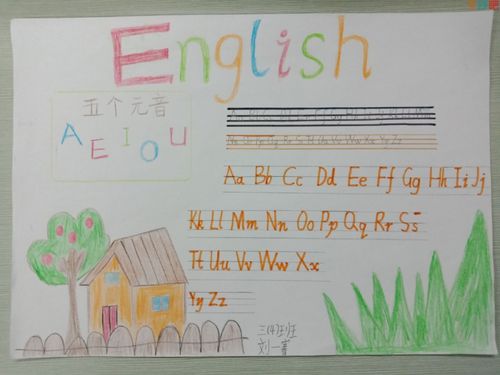 English
五个元音
A E I O U
Aa Bb Cc Dd Ee Ff Gg Hh Ii Jj
Kk Ll Mm Nn Oo Pp Qq Rr Ss
Tt Uu Vv Ww Xx
Yy Zz
三(4)班
刘一